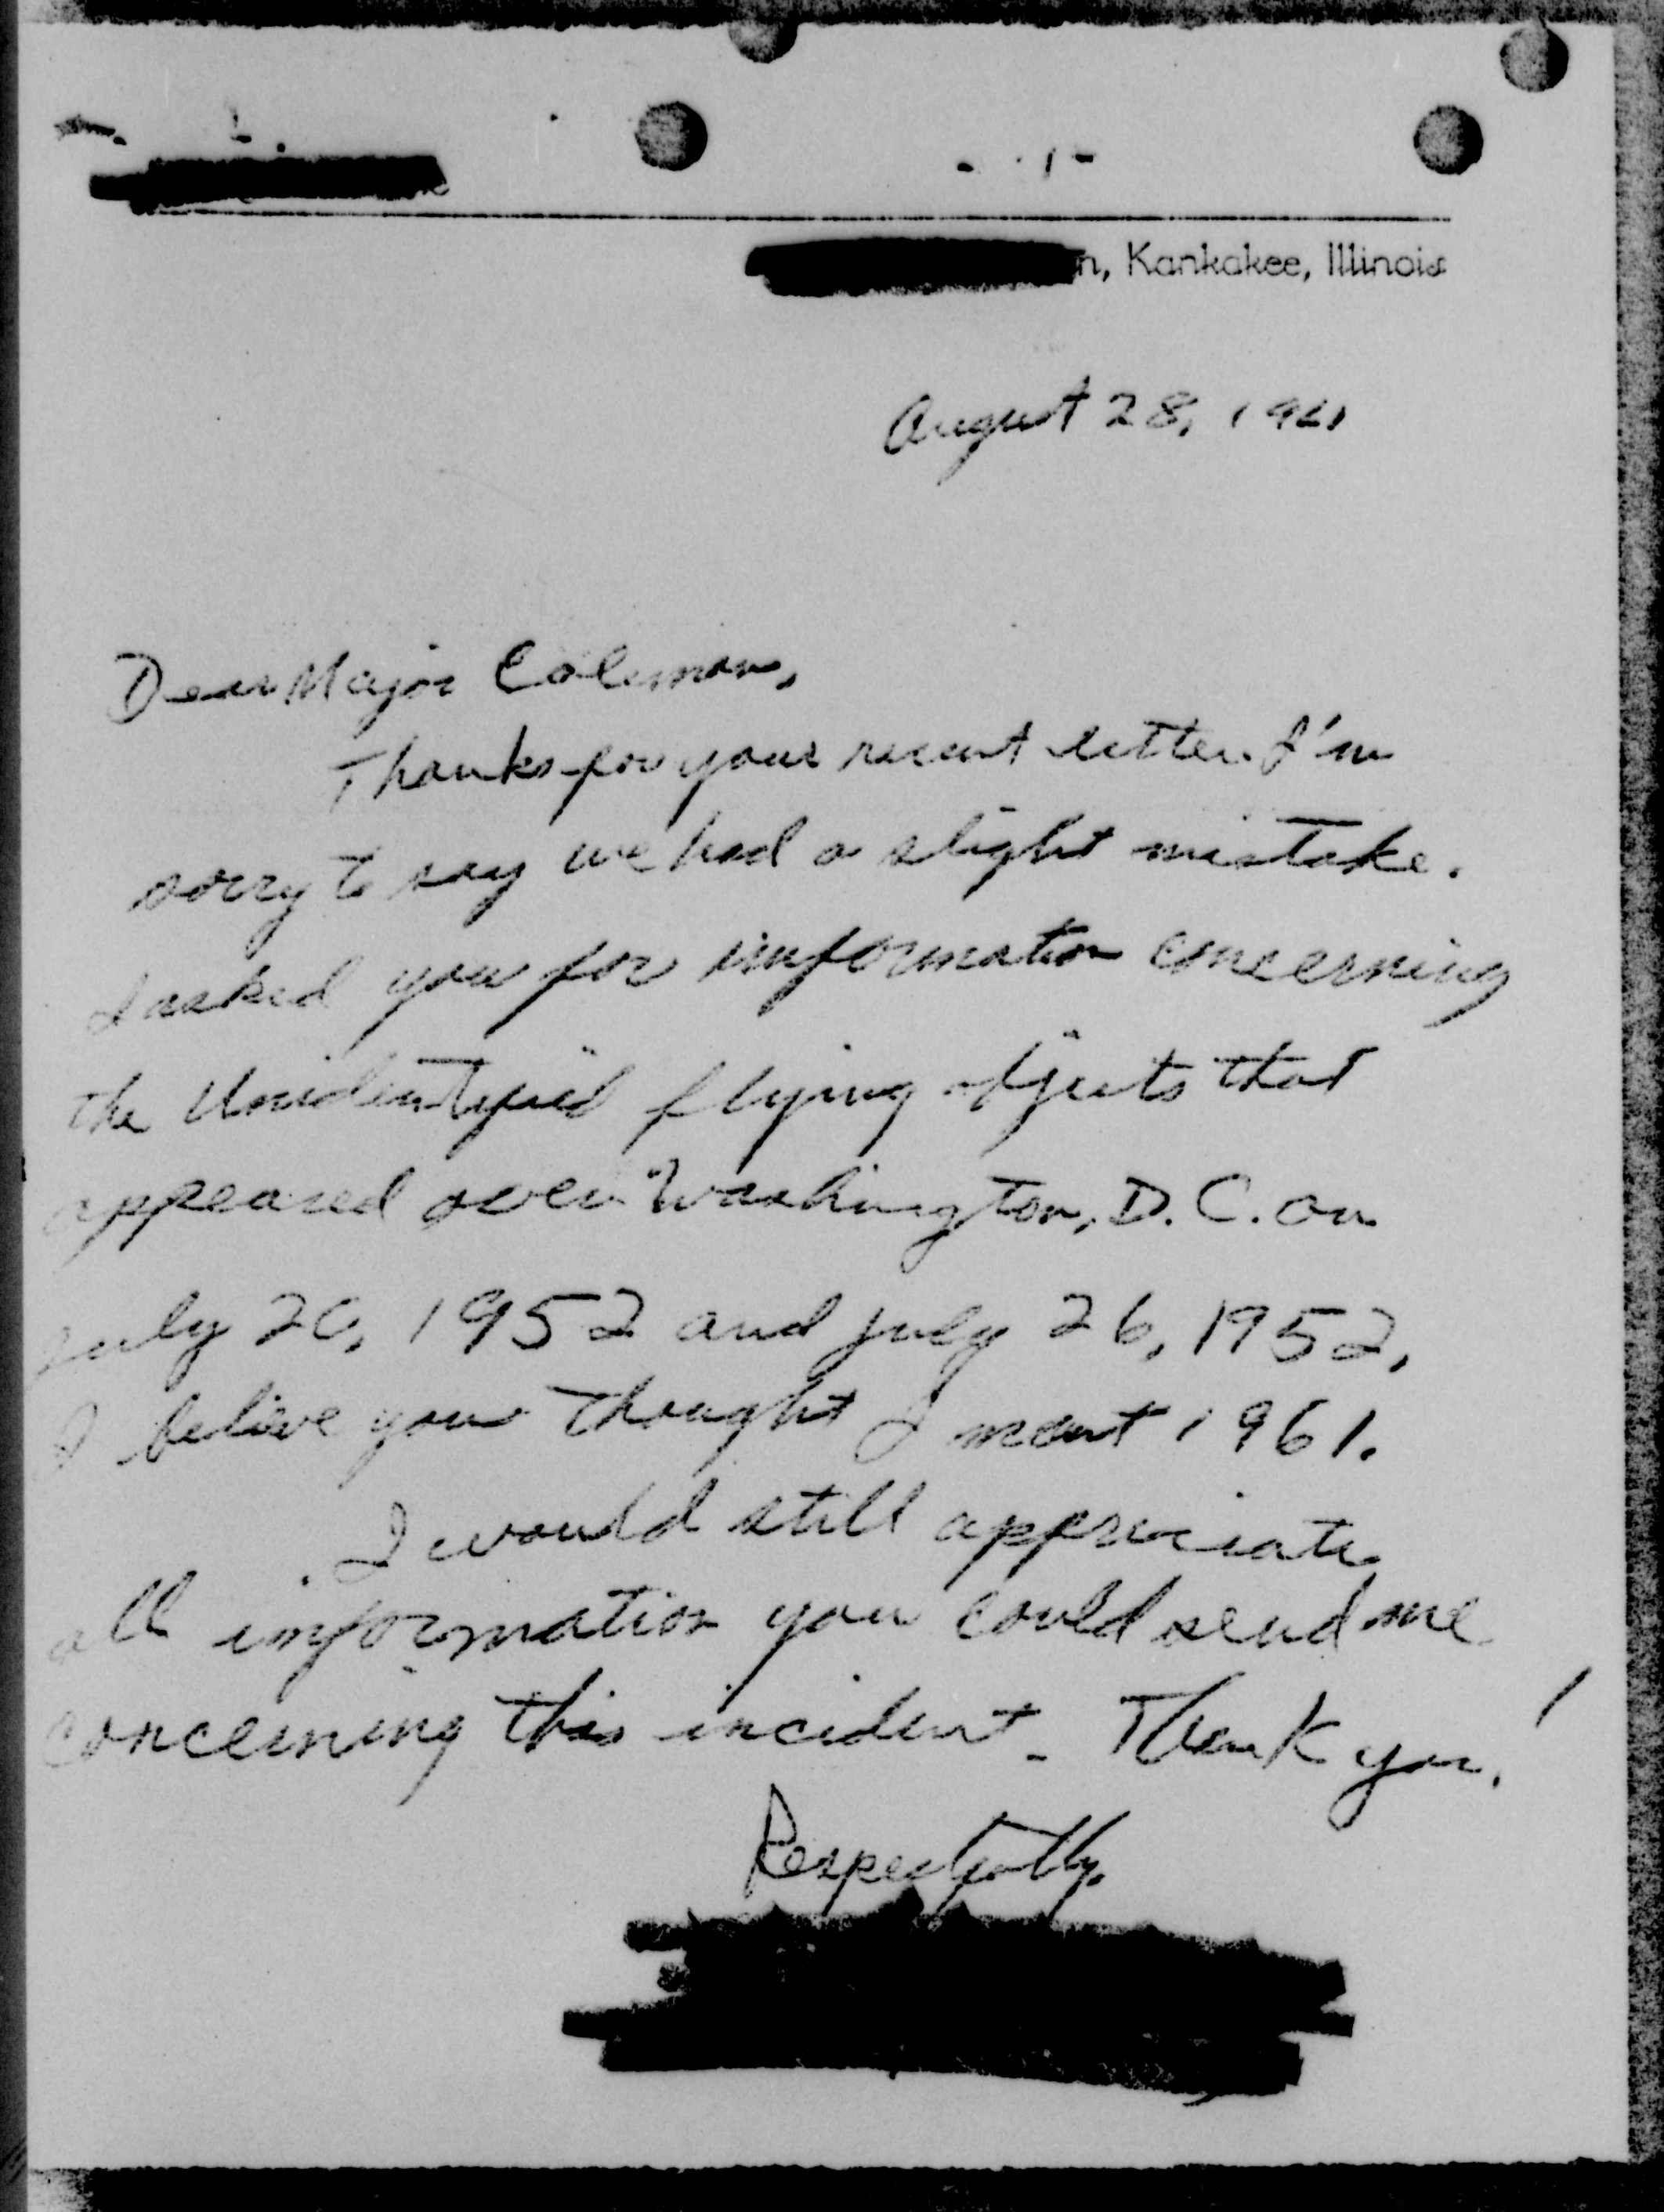 n, Kankakee, Illinois
August 28, 1961
Dear Major Coleman,
Thanks for your recent letter. I'm
sorry to say we had a slight mistake.
I asked you for information concerning
the Unidentified flying objects that
appeared over Washington, D.C. on
July 20, 1952 and July 26, 1952,
I believe you thought I meant 1961.
I would still appreciate
all information you could send me
concerning this incident. Thank you!
Respectfully,